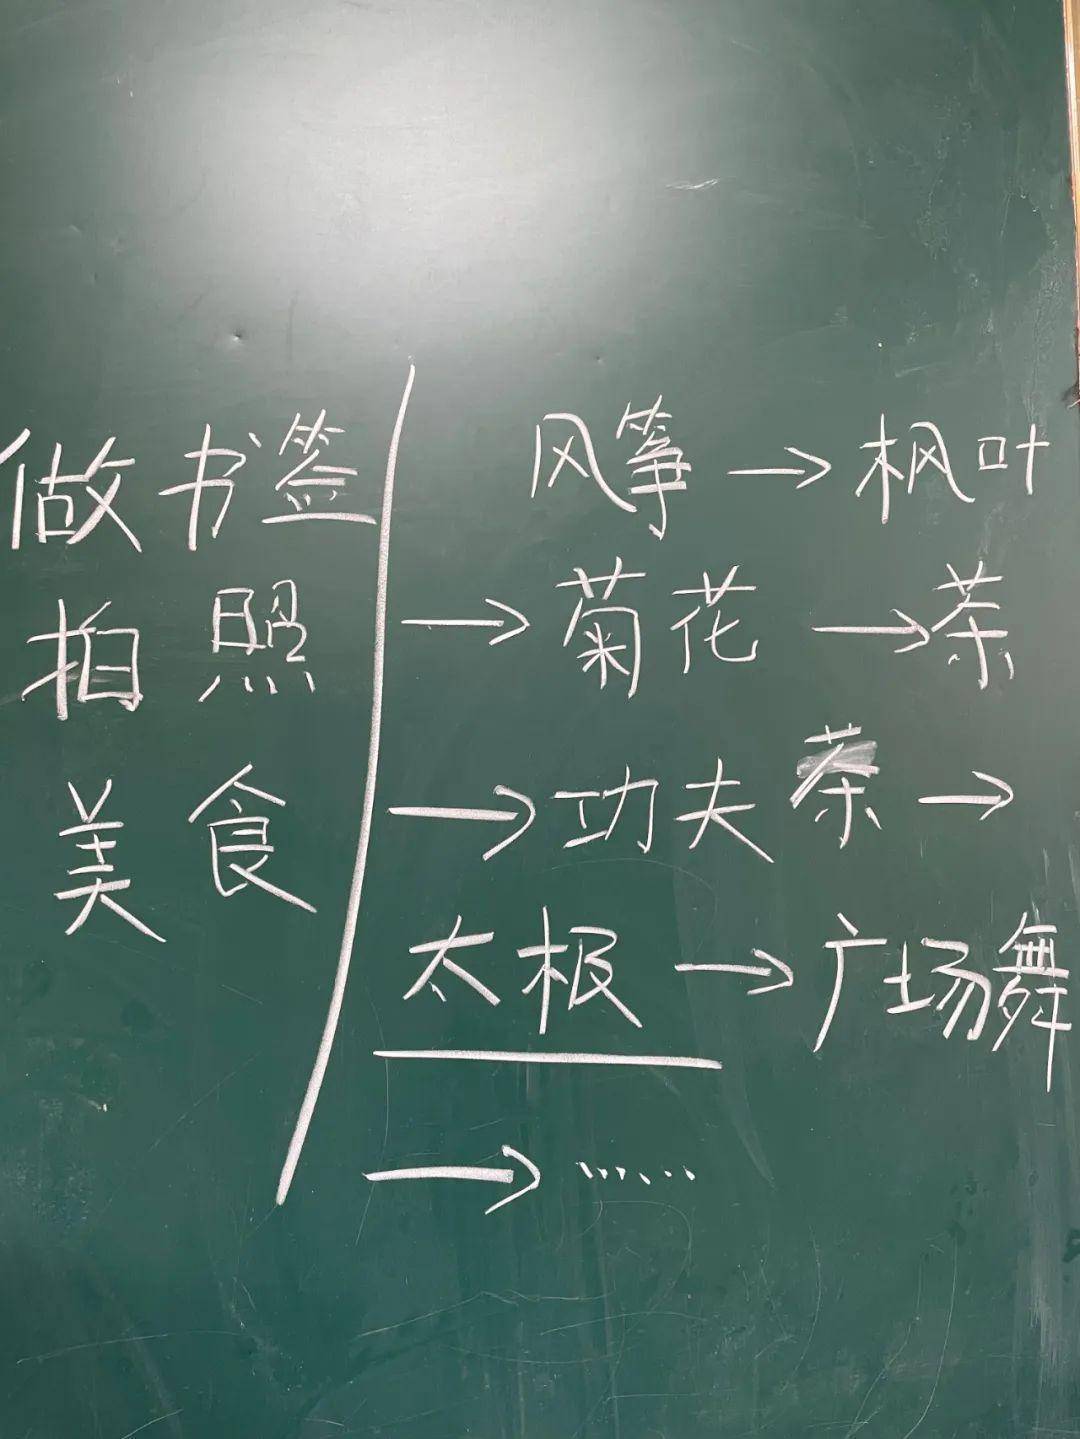 做书签
拍照
美食
风筝→枫叶
→菊花→茶
→功夫茶→
太极→广场舞
→……